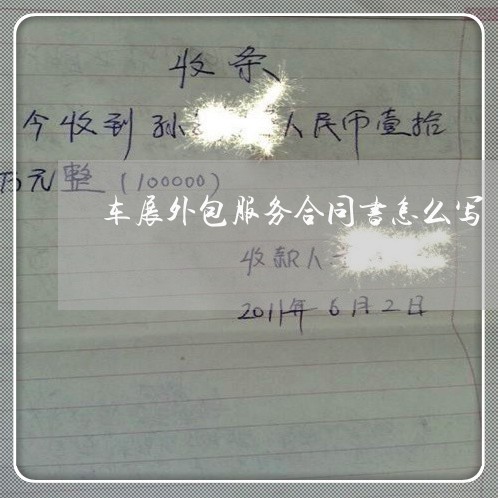 收条
今收到孙 人民币壹拾
万元整(100000)
车展外包服务合同书怎么写
收款人
2011年6月2日